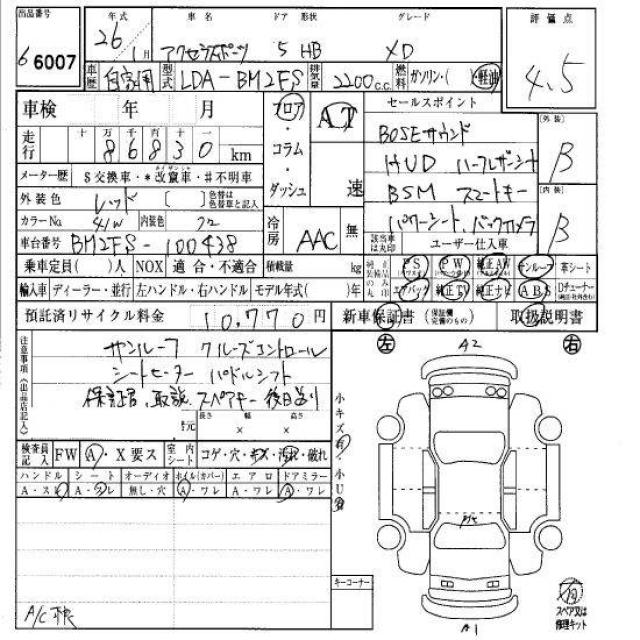 出品番号 年式 車名 ドア 形状 グレード 評価点
6 6007 26 1月 アクセラスポーツ 5 HB XD 4.5
車歴 自家用 型式 LDA-BM2FS 排気量 2200c.c. 燃料 ガソリン・( ・軽油
車検 年 月 フロア・コラム・ダッシュ AT 速 セールスポイント
走行 十 万 千 百 十 一
8 6 8 3 0 km
BOSEサウンド
HUD ハーフレザーシート
BSM スマートキー
パワーシート、バックカメラ
外装 B
内装 B
メーター歴 $交換車・*改竄車・#不明車
外装色 レッド [ ] 色替は色替車と記入
カラーNo. 41W 内装色 クロ 冷房 AAC 無
該当車は丸印 ユーザー仕入車
車台番号 BM2FS-100438
乗車定員( )人 NOX 適合・不適合 積載量 kg
純正装備品のみ丸印 PS PW 純正AW サンルーフ 革シート
エアバッグ 純正TV 純正ナビ ABS Dチューナー
輸入車 ディーラー・並行 左ハンドル・右ハンドル モデル年式( )年
預託済リサイクル料金 10,770円 新車保証書 (保証書完備のもの) 取扱説明書
注意事項(出品店記入)
サンルーフ クルーズコントロール
シートヒーター パドルシフト
保証書、取説、スペアキー 後日送り
号元 長さ × 幅 × 高さ
左 A2 右
小キズ有・小U有
検査員記入 FW A・X要ス 室内シート コゲ・穴・キズ・汚れ・破れ
ハンドル シート オーディオ ホイル(カバー) エアロ ドアミラー
A・スレ A・スレ 無し・穴 A・ワレ A・ワレ A・ワレ
キーコーナー
A1
スペア又は修理キット